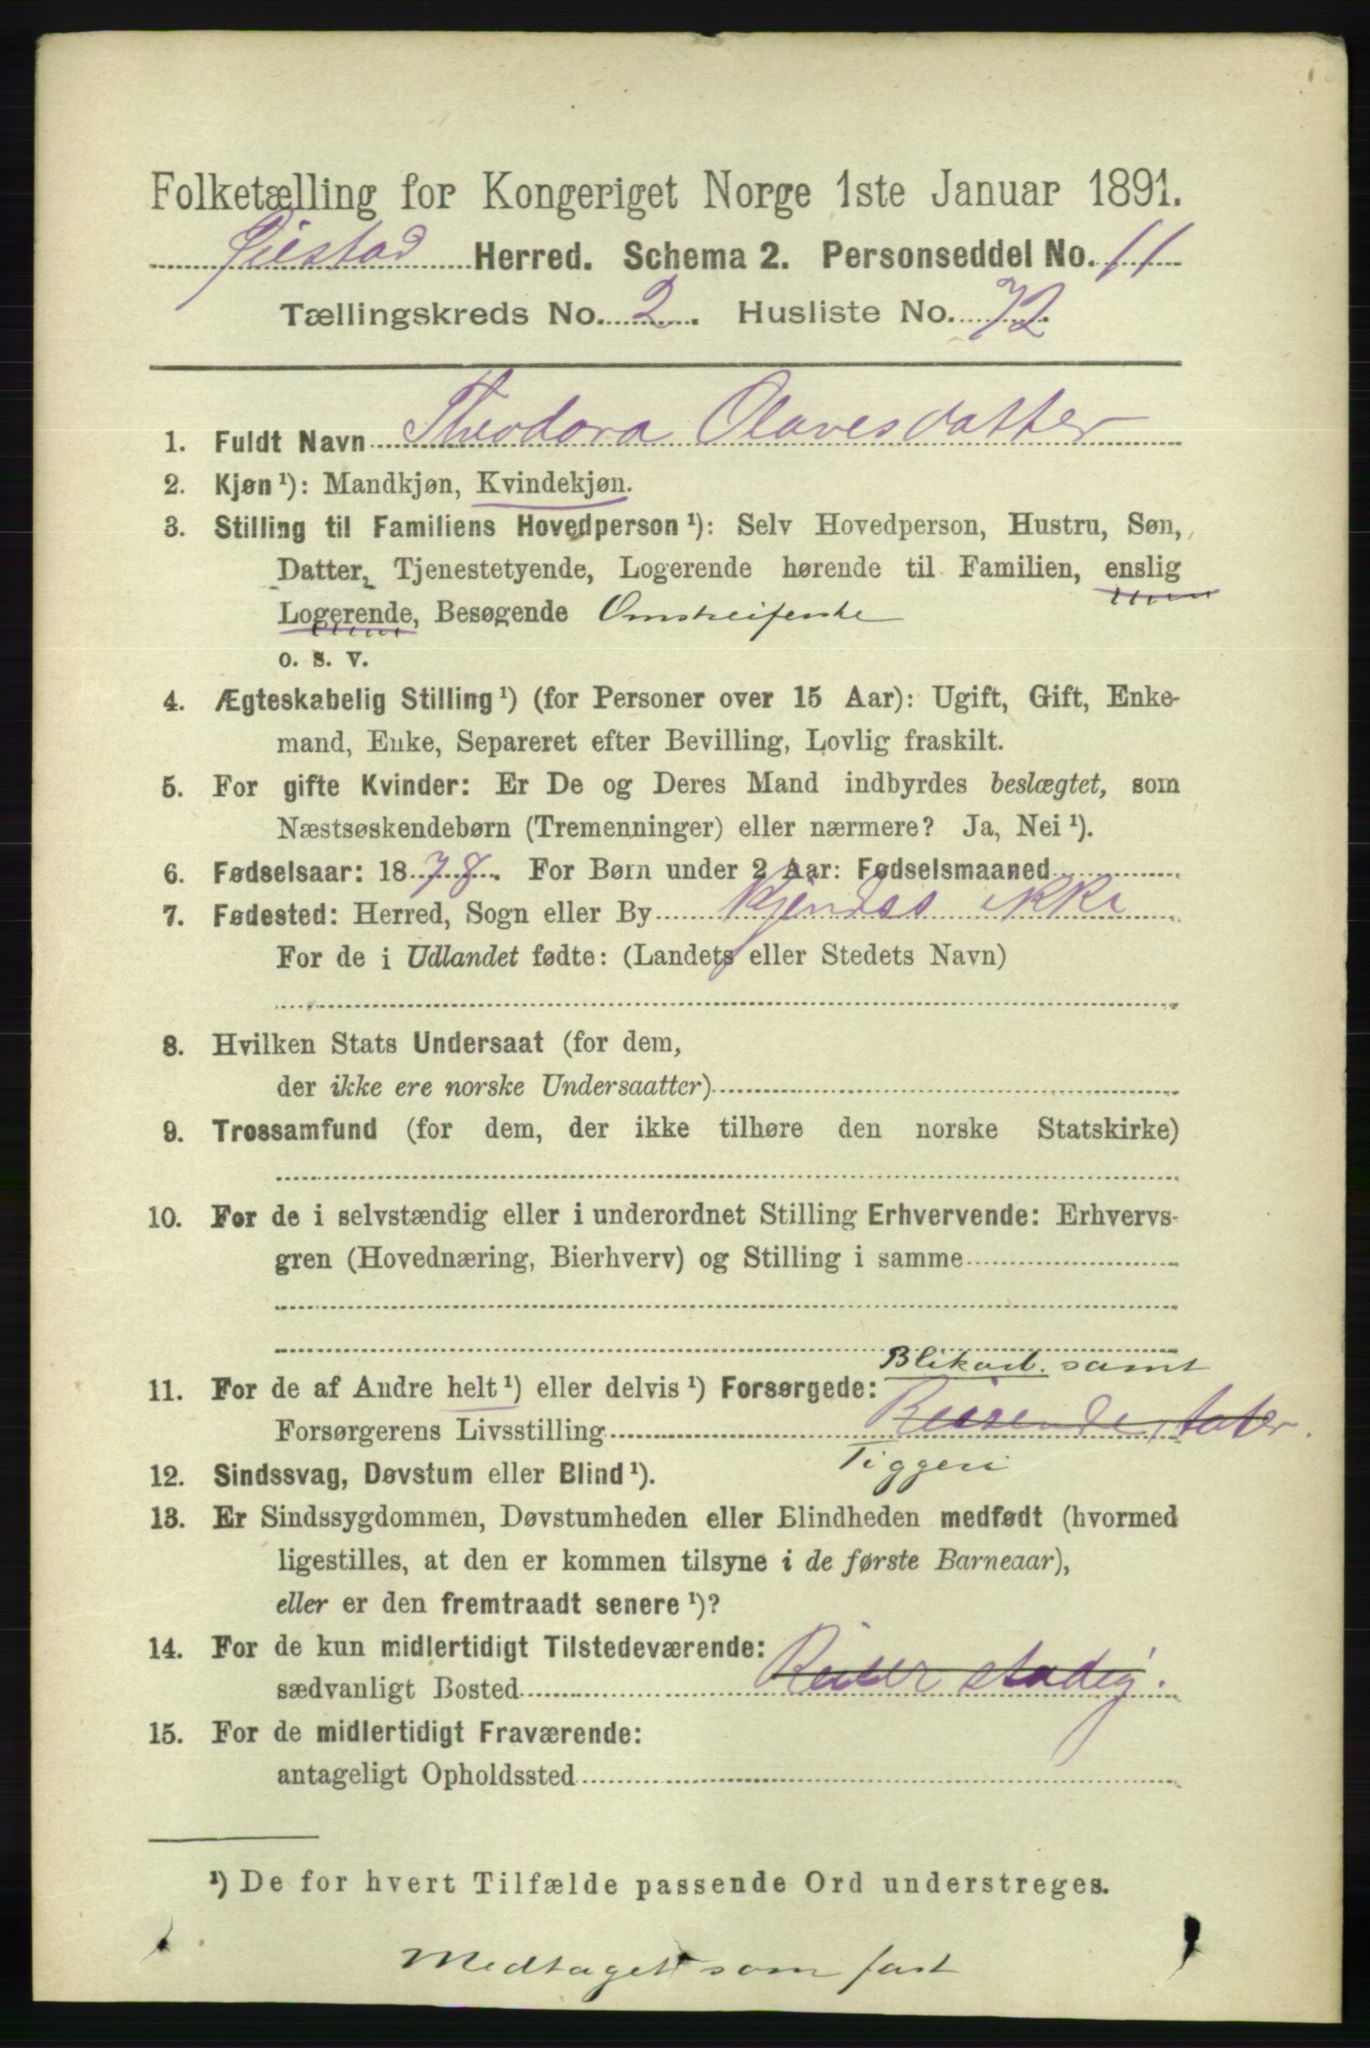 Folketælling for Kongeriget Norge 1ste Januar 1891.
Øiestad Herred. Schema 2. Personseddel No. 11
Tællingskreds No. 2. Husliste No. 72.
1. Fuldt Navn Theodora Olavesdatter
2. Kjøn ¹): Mandkjøn, Kvindekjøn.
3. Stilling til Familiens Hovedperson ¹): Selv Hovedperson, Hustru, Søn,
Datter, Tjenestetyende, Logerende hørende til Familien, enslig
Logerende, Besøgende Omstreifende
o. s. v.
4. Ægteskabelig Stilling ¹) (for Personer over 15 Aar): Ugift, Gift, Enke-
mand, Enke, Separeret efter Bevilling, Lovlig fraskilt.
5. For gifte Kvinder: Er De og Deres Mand indbyrdes beslægtet, som
Næstsøskendebørn (Tremenninger) eller nærmere? Ja, Nei ¹).
6. Fødselsaar: 1878. For Børn under 2 Aar: Fødselsmaaned
7. Fødested: Herred, Sogn eller By Kjendes ikke
For de i Udlandet fødte: (Landets eller Stedets Navn)
8. Hvilken Stats Undersaat (for dem,
der ikke ere norske Undersaatter)
9. Trossamfund (for dem, der ikke tilhøre den norske Statskirke)
10. For de i selvstændig eller i underordnet Stilling Erhvervende: Erhvervs-
gren (Hovednæring, Bierhverv) og Stilling i samme
Blikarb. samt
11. For de af Andre helt ¹) eller delvis ¹) Forsørgede:
Forsørgerens Livsstilling Reisende tater.
Tiggeri
12. Sindssvag, Døvstum eller Blind ¹).
13. Er Sindssygdommen, Døvstumheden eller Blindheden medfødt (hvormed
ligestilles, at den er kommen tilsyne i de første Barneaar),
eller er den fremtraadt senere ¹)?
14. For de kun midlertidigt Tilstedeværende:
sædvanligt Bosted Reiser stadig.
15. For de midlertidigt Fraværende:
antageligt Opholdssted
¹) De for hvert Tilfælde passende Ord understreges.
Medtaget som fast